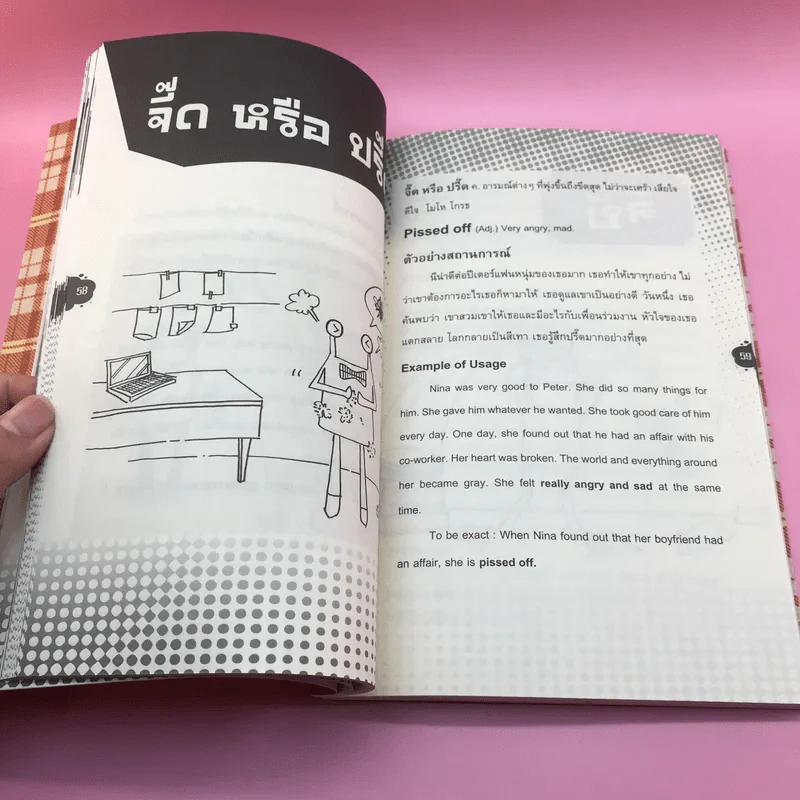 จี๊ด หรือ
58
จี๊ด หรือ ปรี๊ด ค. อารมณ์ต่างๆ ที่พุ่งขึ้นถึงขีดสุด ไม่ว่าจะเศร้า เสียใจ
ดีใจ โมโห โกรธ
Pissed off (Adj.) Very angry, mad.
ตัวอย่างสถานการณ์
นีน่าดีต่อปีเตอร์แฟนหนุ่มของเธอมาก เธอทำให้เขาทุกอย่าง ไม่
ว่าเขาต้องการอะไรเธอก็หามาให้ เธอดูแลเขาเป็นอย่างดี วันหนึ่ง เธอ
ค้นพบว่า เขาสวมเขาให้เธอและมีอะไรกับเพื่อนร่วมงาน หัวใจของเธอ
แตกสลาย โลกกลายเป็นสีเทา เธอรู้สึกปรี๊ดมากอย่างที่สุด
59
Example of Usage
Nina was very good to Peter. She did so many things for
him. She gave him whatever he wanted. She took good care of him
every day. One day, she found out that he had an affair with his
co-worker. Her heart was broken. The world and everything around
her became gray. She felt really angry and sad at the same
time.
To be exact : When Nina found out that her boyfriend had
an affair, she is pissed off.